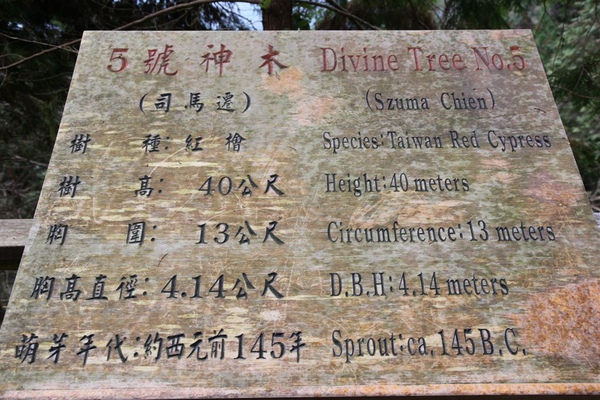 5號神木 Divine Tree No.5
(司馬遷) (Szuma Chien)
樹種:紅檜 Species:Taiwan Red Cypress
樹高:40公尺 Height:40 meters
胸圍:13公尺 Circumference:13 meters
胸高直徑:4.14公尺 D.B.H:4.14 meters
萌芽年代:約西元前145年 Sprout:ca.145B.C.